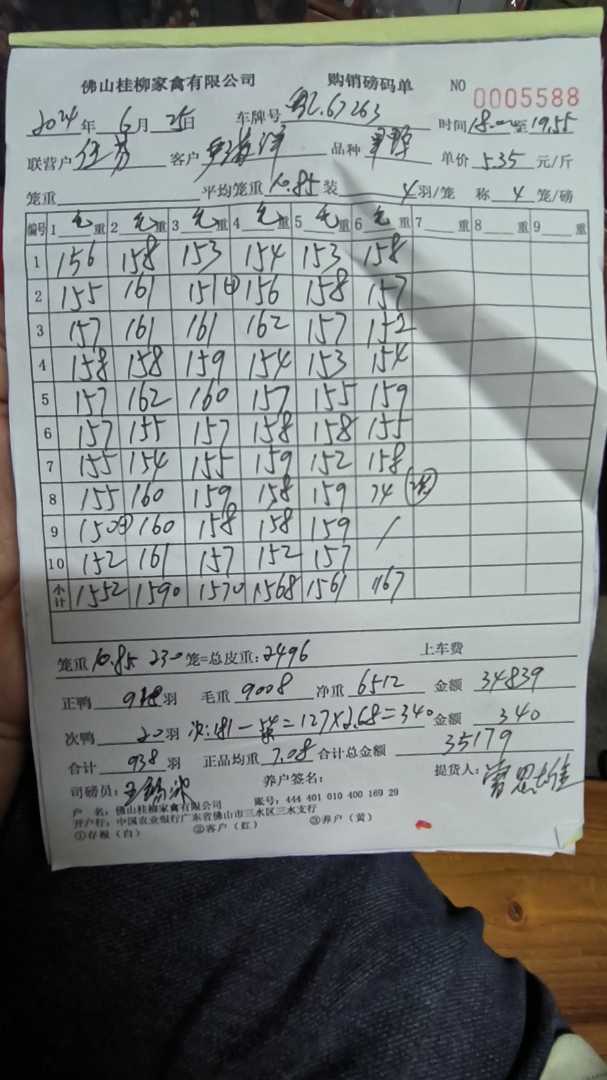 佛山桂柳家禽有限公司 购销磅码单 NO 0005588
2024年 6月 25日 车牌号 67263 时间 18.00至19.55
联营户 客户 品种 单价 5.35 元/斤
笼重 平均笼重 10.85 装 4羽/笼 称 4 笼/磅
编号 1 毛重 2 毛重 3 毛重 4 毛重 5 毛重 6 毛重 7 重 8 重 9 重
1 156 158 153 154 153 158
2 155 161 151④ 156 158 157
3 157 161 161 162 157 152
4 158 158 159 154 153 154
5 157 162 160 157 155 159
6 157 155 157 158 158 155
7 155 154 155 159 152 158
8 155 160 159 158 159 74
9 150 160 158 158 159 /
10 152 161 157 152 157
小计 1552 1590 1570 1568 1561 1167
笼重 10.85 230 笼=总皮重: 2496 上车费
正鸭 918 羽 毛重 9008 净重 6512 金额 34839
次鸭 20 羽 次: = 127×2.68=340 金额 340
合计 938 羽 正品均重 7.08 合计总金额 35179
司磅员: 养户签名: 提货人:
户 名: 佛山桂柳家禽有限公司 账号: 444 401 010 400 169 29
开户行: 中国农业银行广东省佛山市三水区三水支行
①存根(白) ②客户(红) ③养户(黄)